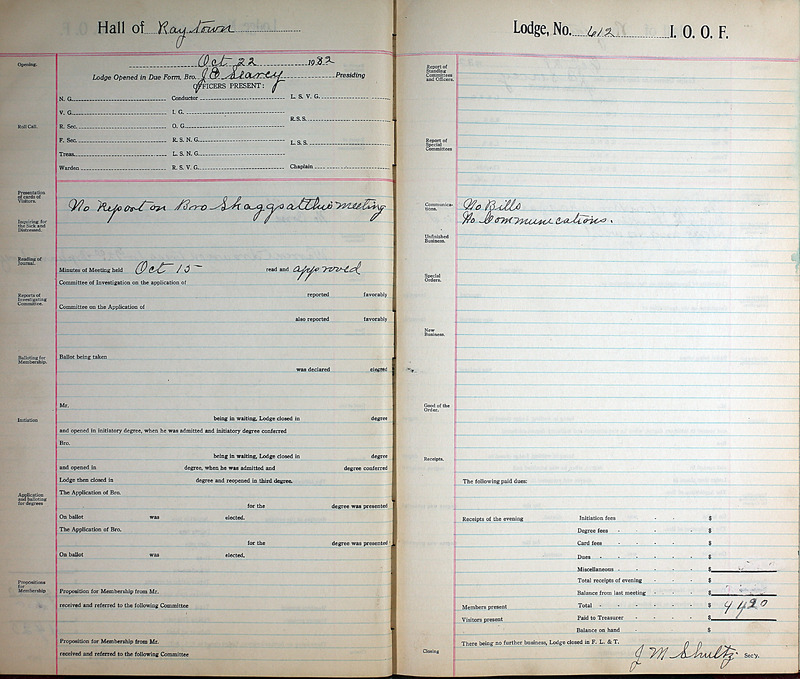 Hall of Raytown
Opening.
Oct 22 1932
Lodge Opened in Due Form, Bro. J E Searcy Presiding
OFFICERS PRESENT:
Roll Call.
N. G. Conductor L. S. V. G.
V. G. I. G. R.S.S.
R. Sec. O. G.
F. Sec. R. S. N. G. L. S. S.
Treas. L. S. N. G.
Warden R. S. V. G. Chaplain
Presentation of cards of Visitors.
No Report on Bro Skaggs at this meeting
Inquiring for the Sick and Distressed.
Reading of Journal.
Minutes of Meeting held Oct 15 read and approved
Committee of Investigation on the application of
Reports of Investigating Committee.
reported favorably
Committee on the Application of
also reported favorably
Balloting for Membership.
Ballot being taken
was declared elected
Mr.
Initiation
being in waiting, Lodge closed in degree
and opened in initiatory degree, when he was admitted and initiatory degree conferred
Bro.
being in waiting, Lodge closed in degree
and opened in degree, when he was admitted and degree conferred
Lodge then closed in degree and reopened in third degree.
Application and balloting for degrees
The Application of Bro.
for the degree was presented
On ballot was elected.
The Application of Bro.
for the degree was presented
On ballot was elected.
Propositions for Membership
Proposition for Membership from Mr.
received and referred to the following Committee
Proposition for Membership from Mr.
received and referred to the following Committee
Lodge, No. 612 I. O. O. F.
Report of Standing Committees and Officers.
Report of Special Committees
Communications.
No Bills
No Communications.
Unfinished Business.
Special Orders.
New Business.
Good of the Order.
Receipts.
The following paid dues:
Receipts of the evening Initiation fees $
Degree fees $
Card fees $
Dues $
Miscellaneous $
Total receipts of evening $
Balance from last meeting $
Members present Total $ 44 20
Visitors present Paid to Treasurer $
Balance on hand $
There being no further business, Lodge closed in F. L. & T.
Closing
J M Shultz Sec'y.